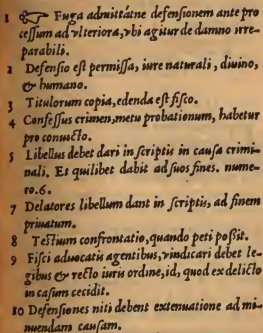 1 ☞ Fuga admittátne defensionem ante pro
cessum ad vlteriora, vbi agitur de damno irre-
parabili.
2 Defensio est permissa, iure naturali, diuino,
& humano.
3 Titulorum copia, edenda est fisco.
4 Confessus crimen, metu probationum, habetur
pro conuicto.
5 Libellus debet dari in scriptis in causa crimi-
nali. Et quilibet dabit ad suos fines. nume-
ro.6.
7 Delatores libellum dant in scriptis, ad finem
priuatum.
8 Testium confrontatio, quando peti possit.
9 Fisci aduocatis agentibus, vindicari debet le-
gibus & recto iuris ordine, id, quod ex delicto
in casum cecidit.
10 Defensiones niti debent extenuatione ad mi-
nuendam causam.